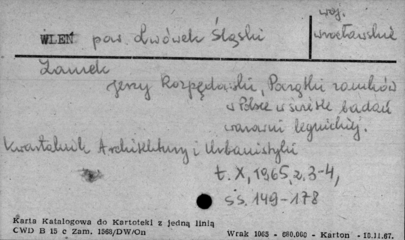 WLEŃ pow. Lwówek Śląski
woj. wrocławskie
Zamek
Jerzy Rozpędowski, Początki zamków
w Polsce w świetle badań
warowni legnickiej.
Kwartalnik Architektury i Urbanistyki
t. X, 1965, z. 3-4,
ss. 149-178
Karta Katalogowa do Kartoteki z jedną linią
CWD B 15 c Zam. 1568/DW/On
Wrak 1065 - 680,000 - Karton - 16.11.67.